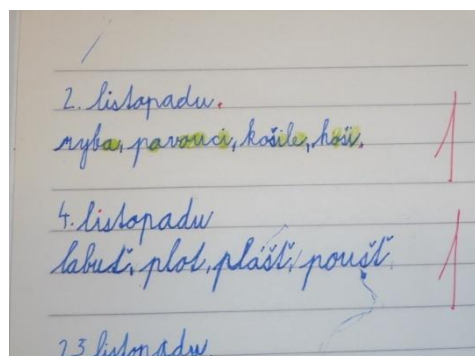 2. listopadu.
ryba, pavouci, košile, hoši.
1
4. listopadu
labuť, plot, plášť, poušť
1
23. listopadu